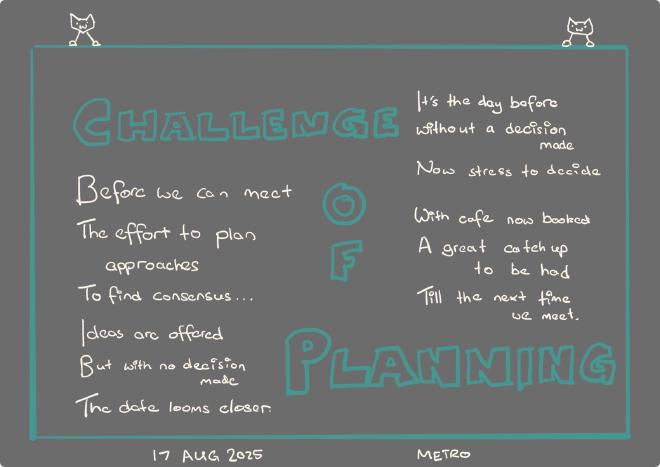 CHALLENGE
OF
PLANNING
Before we can meet
The effort to plan
approaches
To find consensus...
Ideas are offered
But with no decision
made
The date looms closer.
It's the day before
without a decision
made
Now stress to decide
With cafe now booked
A great catch up
to be had
Till the next time
we meet.
17 AUG 2025
METRO